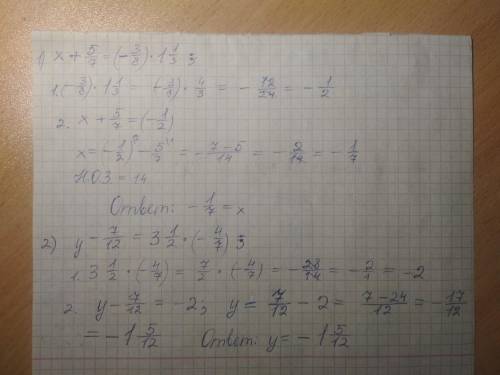 1) x + 5/7 = (-3/8) · 1 1/3 ;
1. (-3/8) · 1 1/3 = (-3/8) · 4/3 = - 12/24 = - 1/2
2. x + 5/7 = (-1/2)
x = (-1/2) - 5/7 = - 7-5/14 = - 2/14 = - 1/7
НОЗ = 14
Ответ: - 1/7 = x
2) y - 7/12 = 3 1/2 · (-4/7) ;
1. 3 1/2 · (-4/7) = 7/2 · (-4/7) = - 28/14 = - 2/1 = -2
2. y - 7/12 = -2; y = 7/12 - 2 = 7-24/12 = - 17/12
= -1 5/12 Ответ: y = -1 5/12